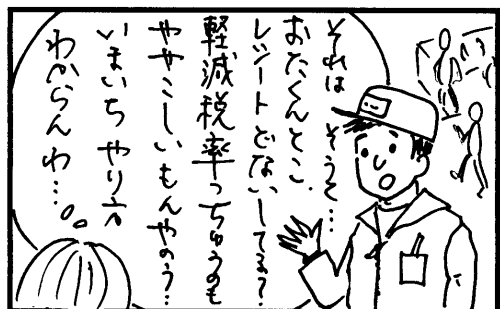 それは そうと…
おたくんとこ、
レシートどないしてる?
軽減税率っちゅうのも
ややこしいもんやのう…
いまいち やり方
わからんわ…